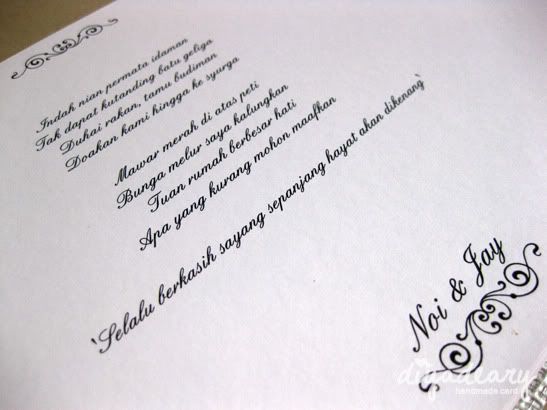 Indah nian permata idaman
Tak dapat kutanding batu geliga
Duhai rakan, tamu budiman
Doakan kami hingga ke syurga
Mawar merah di atas peti
Bunga melur saya kalungkan
Tuan rumah berbesar hati
Apa yang kurang mohon maafkan
`Selalu berkasih sayang sepanjang hayat akan dikenang`
Noi & Jay
digadeary
handmade card